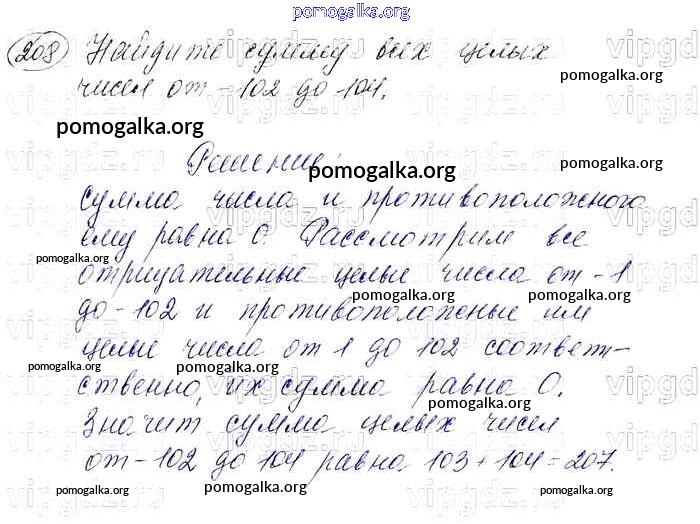 pomogalka.org
208 Найдите сумму всех целых
чисел от -102 до 104.
pomogalka.org
pomogalka.org
Решение:
pomogalka.org
pomogalka.org
сумма числа и противоположного
ему равна 0. Рассмотрим все
pomogalka.org
отрицательные целые числа от -1
pomogalka.org pomogalka.org
до -102 и противоположные им
целые числа от 1 до 102 соответ-
pomogalka.org pomogalka.org
ственно, их сумма равна 0.
pomogalka.org
Значит сумма целых чисел
от -102 до 104 равна 103 + 104 = 207.
pomogalka.org pomogalka.org pomogalka.org pomogalka.org